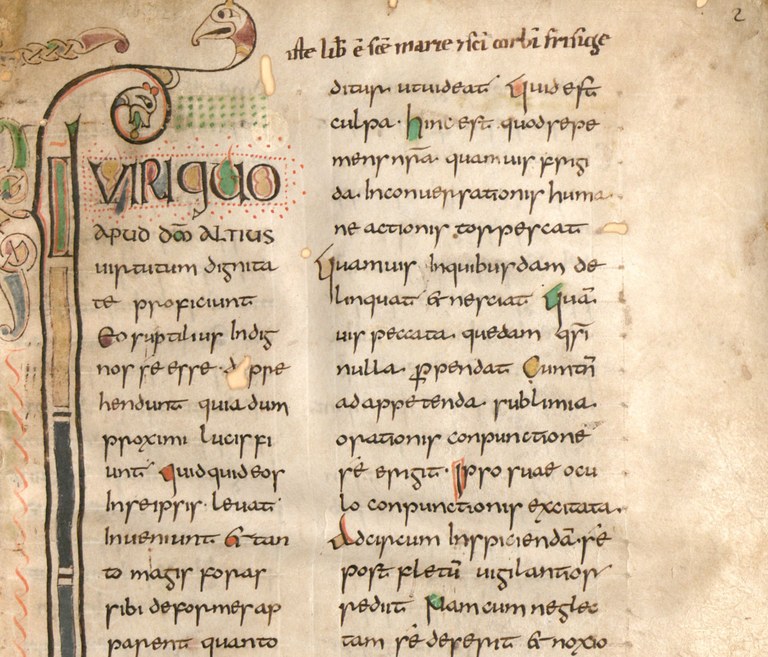 2
iste lib̄ ē scē marie ⁊ sci corbi frisige
VIRI QUO
APUD DŌM ALTIUS
virtutum dignita
te proficiunt
Eo suptilius Indig
nos se esse deppre
hendunt quia dum
proximi lucis fi
unt Quidquid eos
In se ipsis · levat
Inveniunt & tan
to magis foras
sibi deformes ap
parent quanto
ditur ut videat Quid est
culpa · hinc est quod sepe
mens nr̄a · quamvis frigi
da · In conversationis huma
ne actionis torpescat
Quamvis In quibusdam de
linquat & nesciat Quā
vis peccata · quedam qsi
nulla · p̱pendat Cum tn̄
ad appetenda · sublimia ·
orationis conpunctione
se erigit · Ipso suae ocu
lo conpunctionis excitata ·
Ad circum Inspicienda · se
post fletū vigilantior
redit Nam cum neglec
tam se deserit & noxio